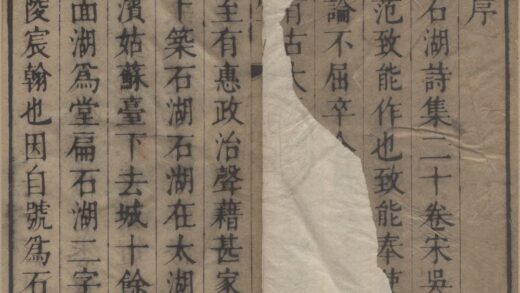 序
石湖詩集二十卷宋吳
范致能作也致能奉使
論不屈卒全
有古大
至有惠政治聲藉甚家
卜築石湖石湖在太湖
濱姑蘇臺下去城十餘
面湖爲堂扁石湖二字
陵宸翰也因自號爲石